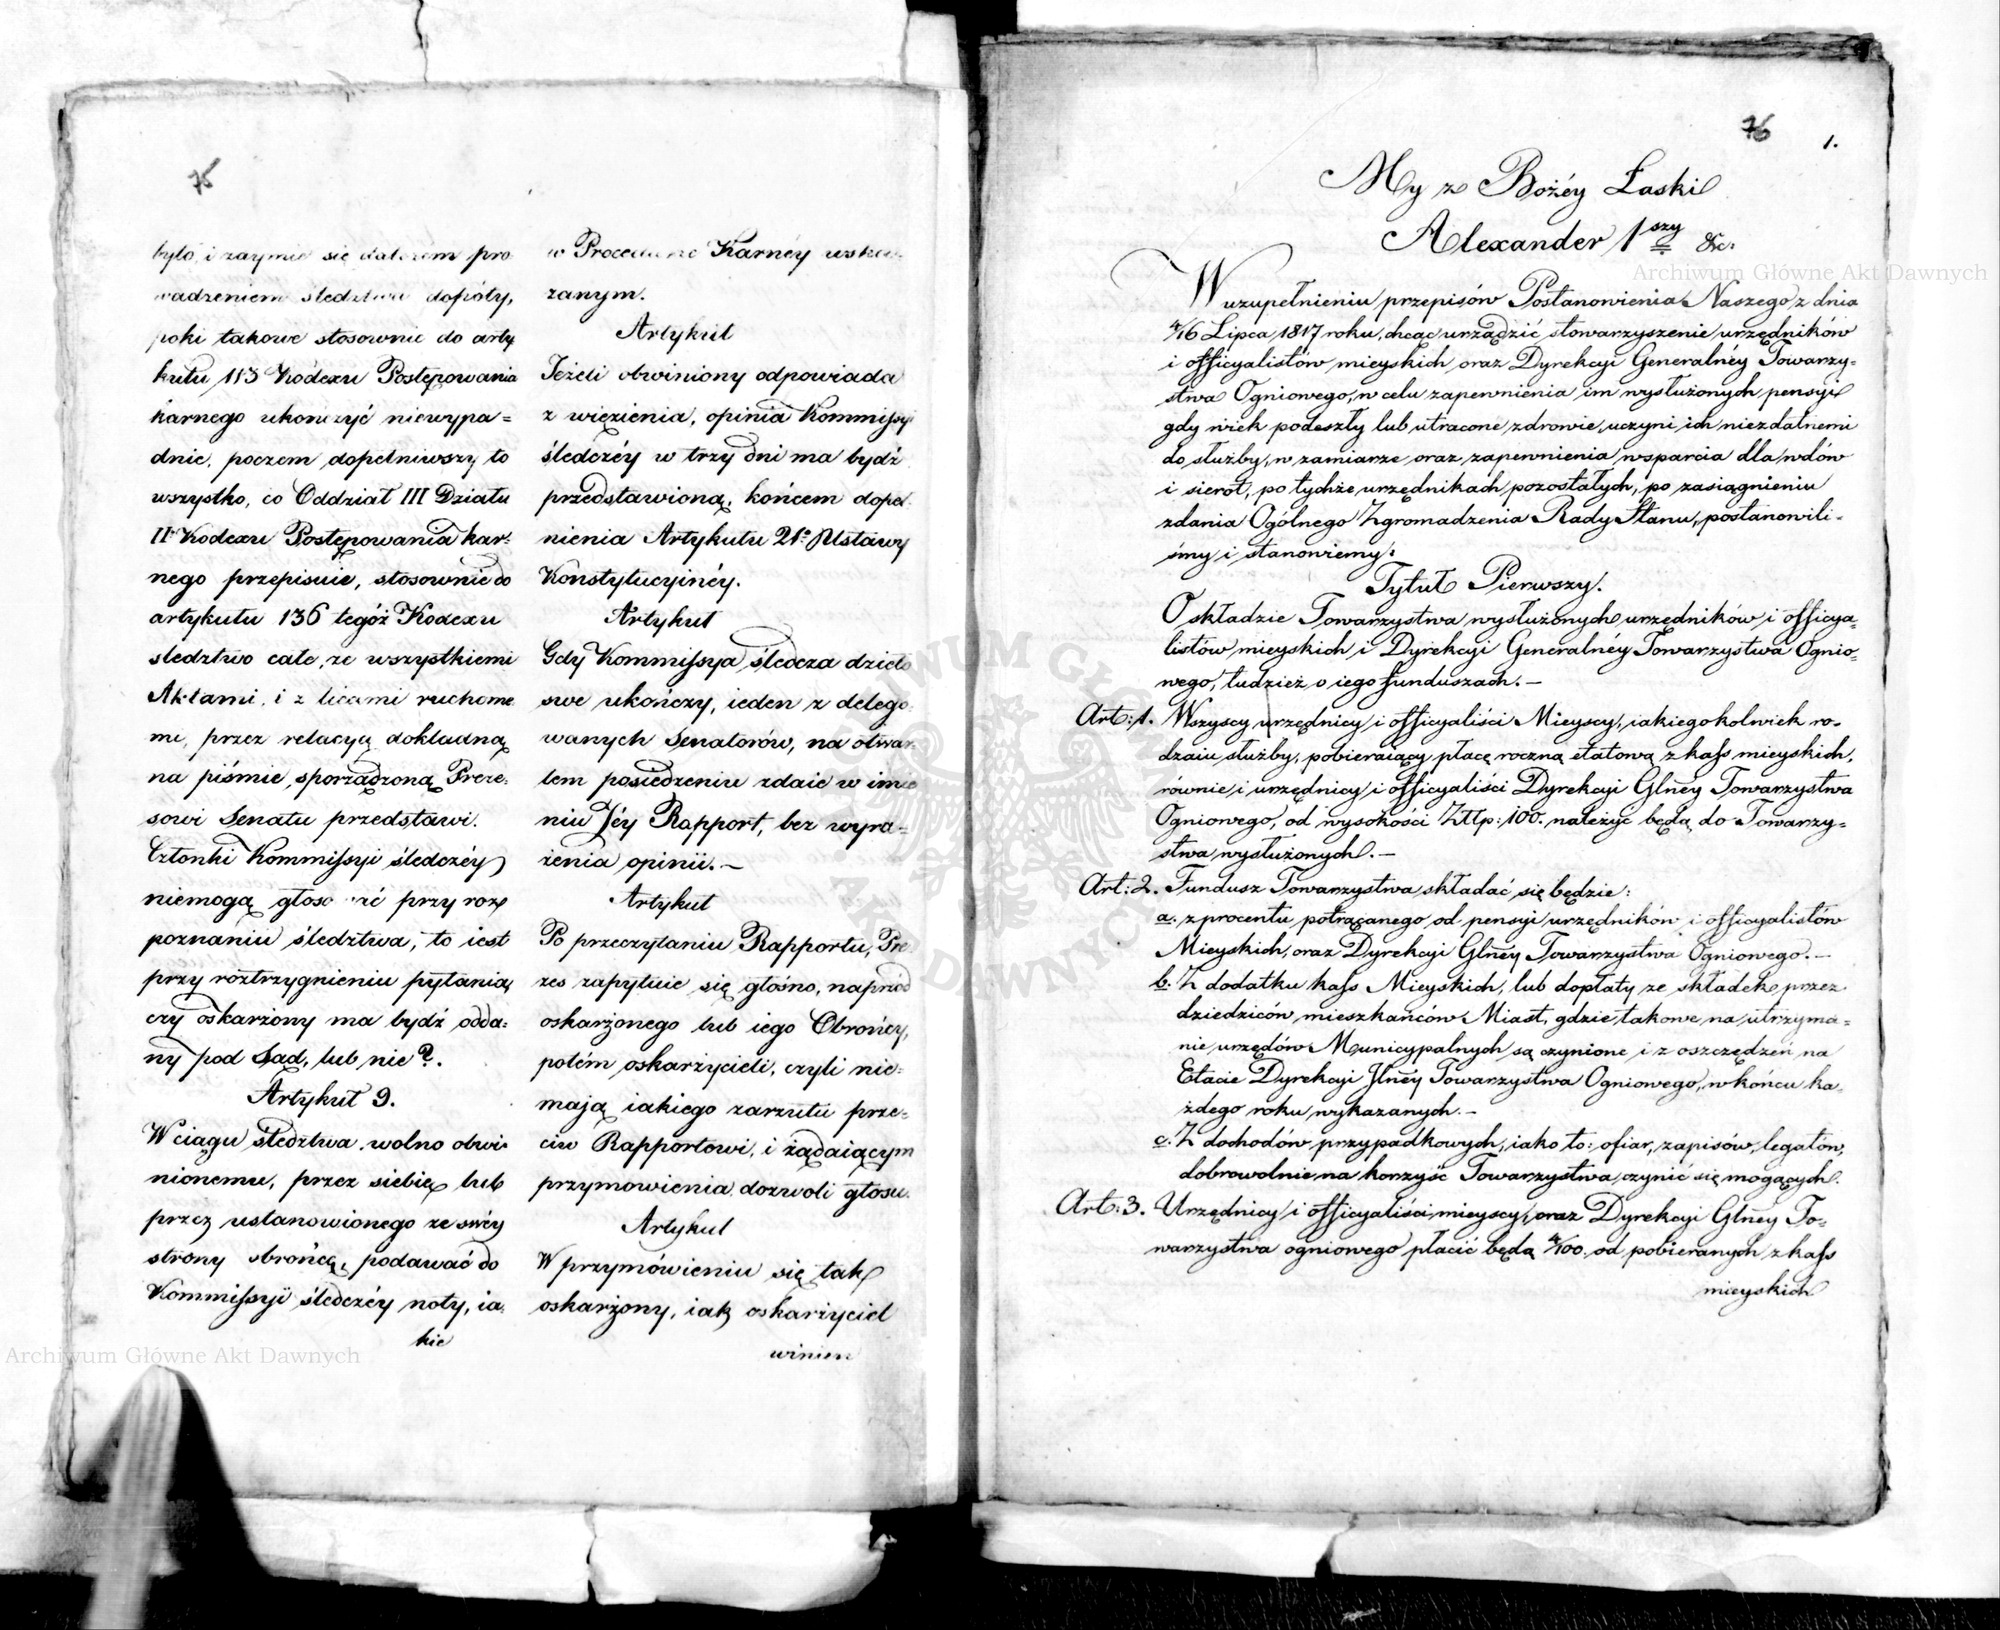 76
było, i zaymie się dalszem pro
wadzeniem śledztwa dopóty,
poki takowe stosownie do arty
kułu 113 Kodexu Postępowania
karnego ukończyć niewypa=
dnie, poczem dopełniwszy to
wszystko, co Oddział III Działu
II Kodexu Postępowania kar=
nego przepisuie, stosownie do
artykułu 136 tegóż Kodexu
śledztwo całe, ze wszystkiemi
Aktami, i z licami ruchome
mi, przez relacyą dokładną
na piśmie, sporządzoną Preze=
sowi Senatu przedstawi.
Członki Kommissyi śledczéy
niemogą głosować przy roz
poznaniu śledztwa, to iest
przy roztrzygnieniu pytania,
czy oskarżony ma bydź odda=
ny pod Sąd, lub nie?.
Artykuł 9.
W ciągu śledztwa, wolno obwi=
nionemu, przez siebie, lub
przez ustanowionego ze swéy
strony obrońcę, podawać do
Kommissyi śledczéy noty, ia=
kie
w Procedurze Karnéy wska=
zanym.
Artykuł
Jeżeli obwiniony odpowiada
z więzienia, opinia Kommissyi
śledczéy w trzy dni ma bydź
przedstawioną, końcem dopeł=
nienia Artykułu 21º Ustawy
Konstytucyinéy.
Artykuł
Gdy Kommissya śledcza dzieło
swe ukończy, ieden z delego=
wanych Senatorów, na otwar
tem posiedzeniu zdaie w imie
niu Jéy Rapport, bez wyra=
żenia opinii. —
Artykuł
Po przeczytaniu Rapportu, Pre
zes zapytuie się głośno, naprzód
oskarżonego lub iego Obrońcy,
potém oskarżycieli, czyli nie=
mają iakiego zarzutu prze=
ciw Rapportowi, i żądaiącym
przymowienia dozwoli głosu.
Artykuł
W przymówieniu się tak
oskarżony, iak oskarżyciel
winien
76
1.
My z Bożéy Łaski
Alexander 1szy &c.
W uzupełnieniu przepisów Postanowienia Naszego z dnia
4/16 Lipca 1817 roku, chcąc urządzić stowarzyszenie urzędników
i officyalistów mieyskich oraz Dyrekcyi Generalnéy Towarzy=
stwa Ogniowego, w celu zapewnienia im wysłużonych pensyi
gdy wiek podeszły lub utracone zdrowie, uczyni ich niezdatnemi
do służby, w zamiarze oraz zapewnienia wsparcia dla wdów
i sierot, po tychże urzędnikach pozostałych, po zasiągnieniu
zdania Ogólnego Zgromadzenia Rady Stanu, postanowili=
śmy i stanowiemy:
Tytuł Pierwszy.
O składzie Towarzystwa wysłużonych urzędników i officya=
listów mieyskich i Dyrekcyi Generalnéy Towarzystwa Ognio=
wego, tudzież o iego funduszach. —
Art: 1. Wszyscy urzędnicy i officyaliści Mieyscy, iakiegokolwiek ro=
dzaiu służby, pobieraiący płacę roczną etatową z kass mieyskich,
równie i urzędnicy i officyaliści Dyrekcyi Glnéy Towarzystwa
Ogniowego, od wysokości Złłp: 100. należyć będą do Towarzy=
stwa wysłużonych. —
Art: 2. Fundusz Towarzystwa składać się będzie:
a. z procentu potrącanego od pensyi urzędników i officyalistów
Mieyskich, oraz Dyrekcyi Glnéy Towarzystwa Ogniowego. —
b. Z dodatku kass Mieyskich, lub dopłaty ze składek przez
dziedziców mieszkańców Miast, gdzie takowe na utrzyma=
nie urzędów Municypalnych są czynione i z oszczędzeń na
Etacie Dyrekcyi Glnéy Towarzystwa Ogniowego, w końcu ka=
żdego roku wykazanych. —
c. Z dochodów przypadkowych, iako to: ofiar, zapisów, legatów,
dobrowolnie na korzyść Towarzystwa czynić się mogących.
Art: 3. Urzędnicy i officyaliści mieyscy, oraz Dyrekcyi Glnéy To=
warzystwa ogniowego płacić będą 4/100. od pobieranych z kass
mieyskich
Archiwum Główne Akt Dawnych
Archiwum Główne Akt Dawnych
ARCHIWUM GŁÓWNE AKT DAWNYCH